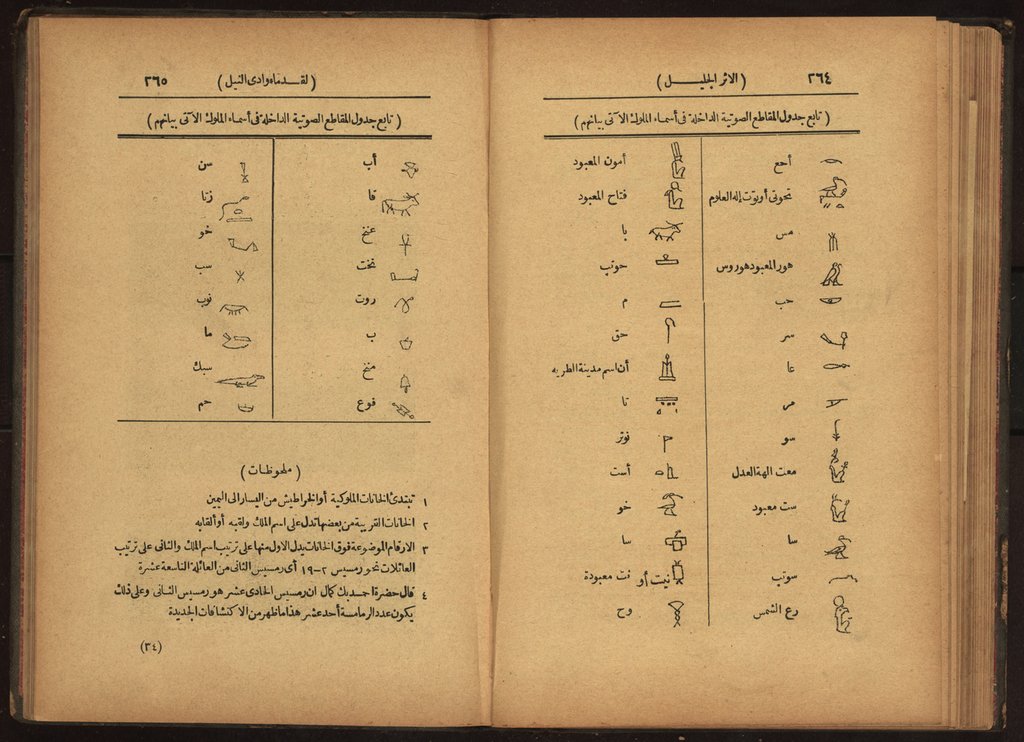 ٢٦٤
(الاثر الجليل)
(تابع جدول المقاطع الصوتية الداخلة فى أسماء الملوك الآتى بيانهم)
أحع
تحوتى أو توت إله العلوم
مس
هور المعبود هوروس
حب
سر
عا
مر
سو
معت الهة العدل
ست معبود
سا
سوتب
رع الشمس
أمون المعبود
فتاح المعبود
با
حوتب
م
حق
أن اسم مدينة المطريه
تا
نوتر
أست
خو
سا
نيت أو نت معبودة
وح
٢٦٥
(لقدماء وادى النيل)
(تابع جدول المقاطع الصوتية الداخلة فى أسماء الملوك الآتى بيانهم)
أب
قا
عنخ
نخت
روت
ب
منخ
فوع
سن
زتا
خو
سب
نوب
ما
سبك
حم
(ملحوظات)
١ تبتدئ الخانات الملوكية أو الخراطيش من اليسار الى اليمين
٢ الخانات القريبة من بعضها تدل على اسم الملك ولقبه أو ألقابه
٣ الارقام الموضوعة فوق الخانات يدل الاول منها على ترتيب اسم الملك والثانى على ترتيب
العائلات نحو رمسيس ٢-١٩ أى رمسيس الثانى من العائلة التاسعة عشرة
٤ قال حضرة احمد بك كمال ان رمسيس الحادى عشر هو رمسيس الثانى وعلى ذلك
يكون عدد الرمامسة أحد عشر هذا ما ظهر من الاكتشافات الجديدة
(٣٤)